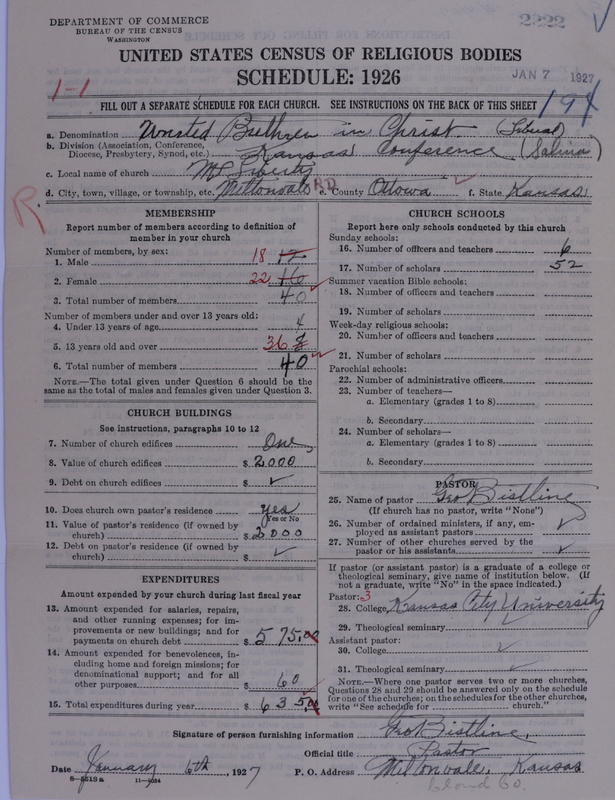 DEPARTMENT OF COMMERCE
BUREAU OF THE CENSUS
WASHINGTON
2322
UNITED STATES CENSUS OF RELIGIOUS BODIES
SCHEDULE: 1926
JAN 7 1927
1-1
194
FILL OUT A SEPARATE SCHEDULE FOR EACH CHURCH. SEE INSTRUCTIONS ON THE BACK OF THIS SHEET
a. Denomination United Brethren in Christ (Liberal)
b. Division (Association, Conference,
Diocese, Presbytery, Synod, etc.) Kansas Conference (Salina)
c. Local name of church Mt Liberty
d. City, town, village, or township, etc. Miltonvale RD e. County Ottowa f. State Kansas
R
MEMBERSHIP
Report number of members according to definition of
member in your church
Number of members, by sex:
1. Male 18 17
2. Female 22 16
3. Total number of members 40
Number of members under and over 13 years old:
4. Under 13 years of age 4
5. 13 years old and over 36
6. Total number of members 40
NOTE.—The total given under Question 6 should be the
same as the total of males and females given under Question 3.
CHURCH BUILDINGS
See instructions, paragraphs 10 to 12
7. Number of church edifices One
8. Value of church edifices $ 2000
9. Debt on church edifices $ ✓
10. Does church own pastor's residence? yes
Yes or No
11. Value of pastor's residence (if owned by
church) $ 2000
12. Debt on pastor's residence (if owned by
church) $ ✓
EXPENDITURES
Amount expended by your church during last fiscal year
13. Amount expended for salaries, repairs,
and other running expenses; for im-
provements or new buildings; and for
payments on church debt $ 575.00
14. Amount expended for benevolences, in-
cluding home and foreign missions; for
denominational support; and for all
other purposes $ 60
15. Total expenditures during year $ 635.00
CHURCH SCHOOLS
Report here only schools conducted by this church
Sunday schools:
16. Number of officers and teachers 6
17. Number of scholars 52
Summer vacation Bible schools:
18. Number of officers and teachers
19. Number of scholars
Week-day religious schools:
20. Number of officers and teachers
21. Number of scholars
Parochial schools:
22. Number of administrative officers
23. Number of teachers—
a. Elementary (grades 1 to 8)
b. Secondary
24. Number of scholars—
a. Elementary (grades 1 to 8)
b. Secondary
PASTOR
25. Name of pastor Geo Bistline
(If church has no pastor, write "None")
26. Number of ordained ministers, if any, em-
ployed as assistant pastors ✓
27. Number of other churches served by the
pastor or his assistants ✓
If pastor (or assistant pastor) is a graduate of a college or
theological seminary, give name of institution below. (If
not a graduate, write "No" in the space indicated.)
Pastor: 3
28. College Kansas City University
29. Theological seminary
Assistant pastor:
30. College ✓
31. Theological seminary ✓
NOTE.—Where one pastor serves two or more churches,
Questions 28 and 29 should be answered only on the schedule
for one of the churches; on the schedules for the other churches,
write "See schedule for church."
Signature of person furnishing information Geo Bistline,
Official title Pastor
Date January 6th, 1927 P. O. Address Miltonvale, Kansas
8-5519a 11-9084
Cloud Co.